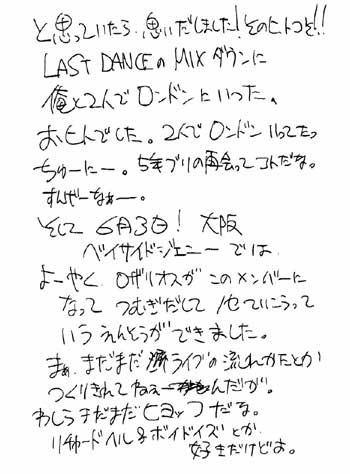 と思っていたら、思いだしました!そのヒトこそ!!
LAST DANCEのMIXダウンに
俺と2人でロンドンにいった、
おヒトでした。2人でロンドンいってたっ
ちゅーにー。5年ブリの再会ってコトだな。
すんげーなぁー。
そして 6月3日! 大阪
ベイサイドジェニーでは
よーやく、ロザリオスがこのメンバーに
なって つむぎだして
いうえんとうができました。
まぁ、まだまだライブの流しかたとか
つくりきれてねぇーんだが。
わしらまだまだヒヨッコだな。
リチャードヘル&ボイドイズとか
好きだけどよ。